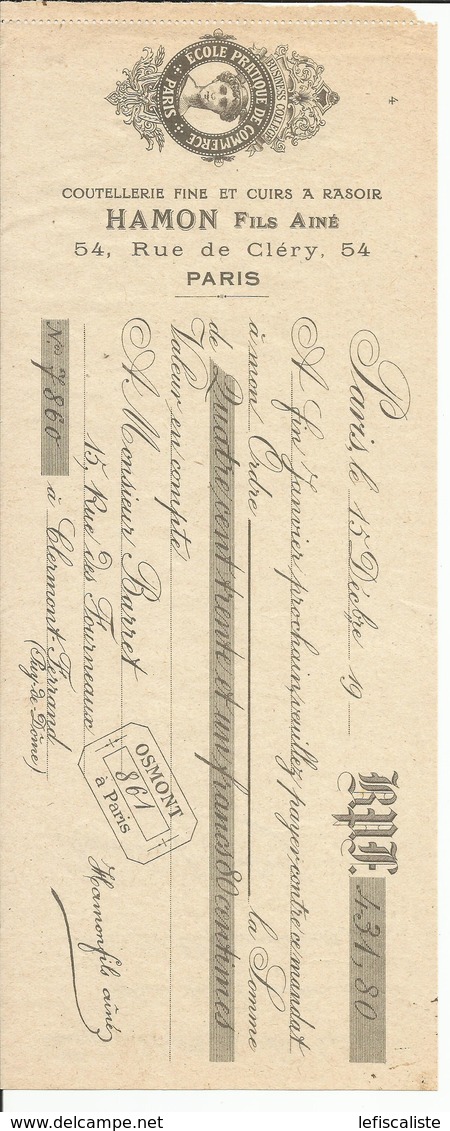 ÉCOLE PRATIQUE DE COMMERCE
PARIS
BUSINESS CONTROL
4
COUTELLERIE FINE ET CUIRS A RASOIR
HAMON FILS AINÉ
54, Rue de Cléry, 54
PARIS
Paris, le 15 Décbre 19
B.P.F. 431,80
A fin Janvier prochain, veuillez payer contre ce mandat
à mon Ordre la Somme
de Quatre cent trente et un francs 80 centimes
Valeur en compte
A Monsieur Barret
15, Rue des Fourneaux
Nos 7860 à Clermont-Ferrand
(Puy-de-Dôme)
OSMONT
861
à Paris
Hamon fils aîné
delcampe.net
lefiscaliste